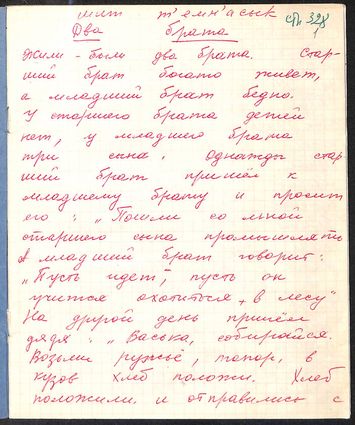 шит т'емн'асык
стр. 328
Два брата
Жили-были два брата. Стар-
ший брат богато живет,
а младший брат бедно.
У старшего брата детей
нет, у младшего брата
три сына. Однажды стар-
ший брат пришёл к
младшему брату и просит
его: „Пошли со мной
старшего сына промышлять
А младший брат говорит:
„Пусть идет", пусть он
учится охотиться в лесу"
На другой день пришёл
дядя: „Васька, собирайся.
Возьми ружьё, топор, в
кузов хлеб положи. Хлеб
положили и отправились с